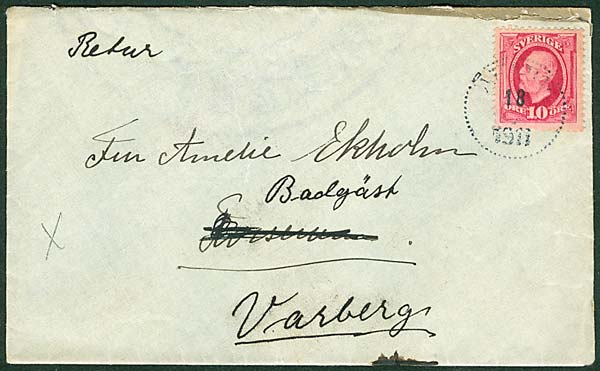 Retur
SVERIGE
18
ÖRE 10 ÖRE
Fru Amelie Ekholm
Badgäst
Varberg